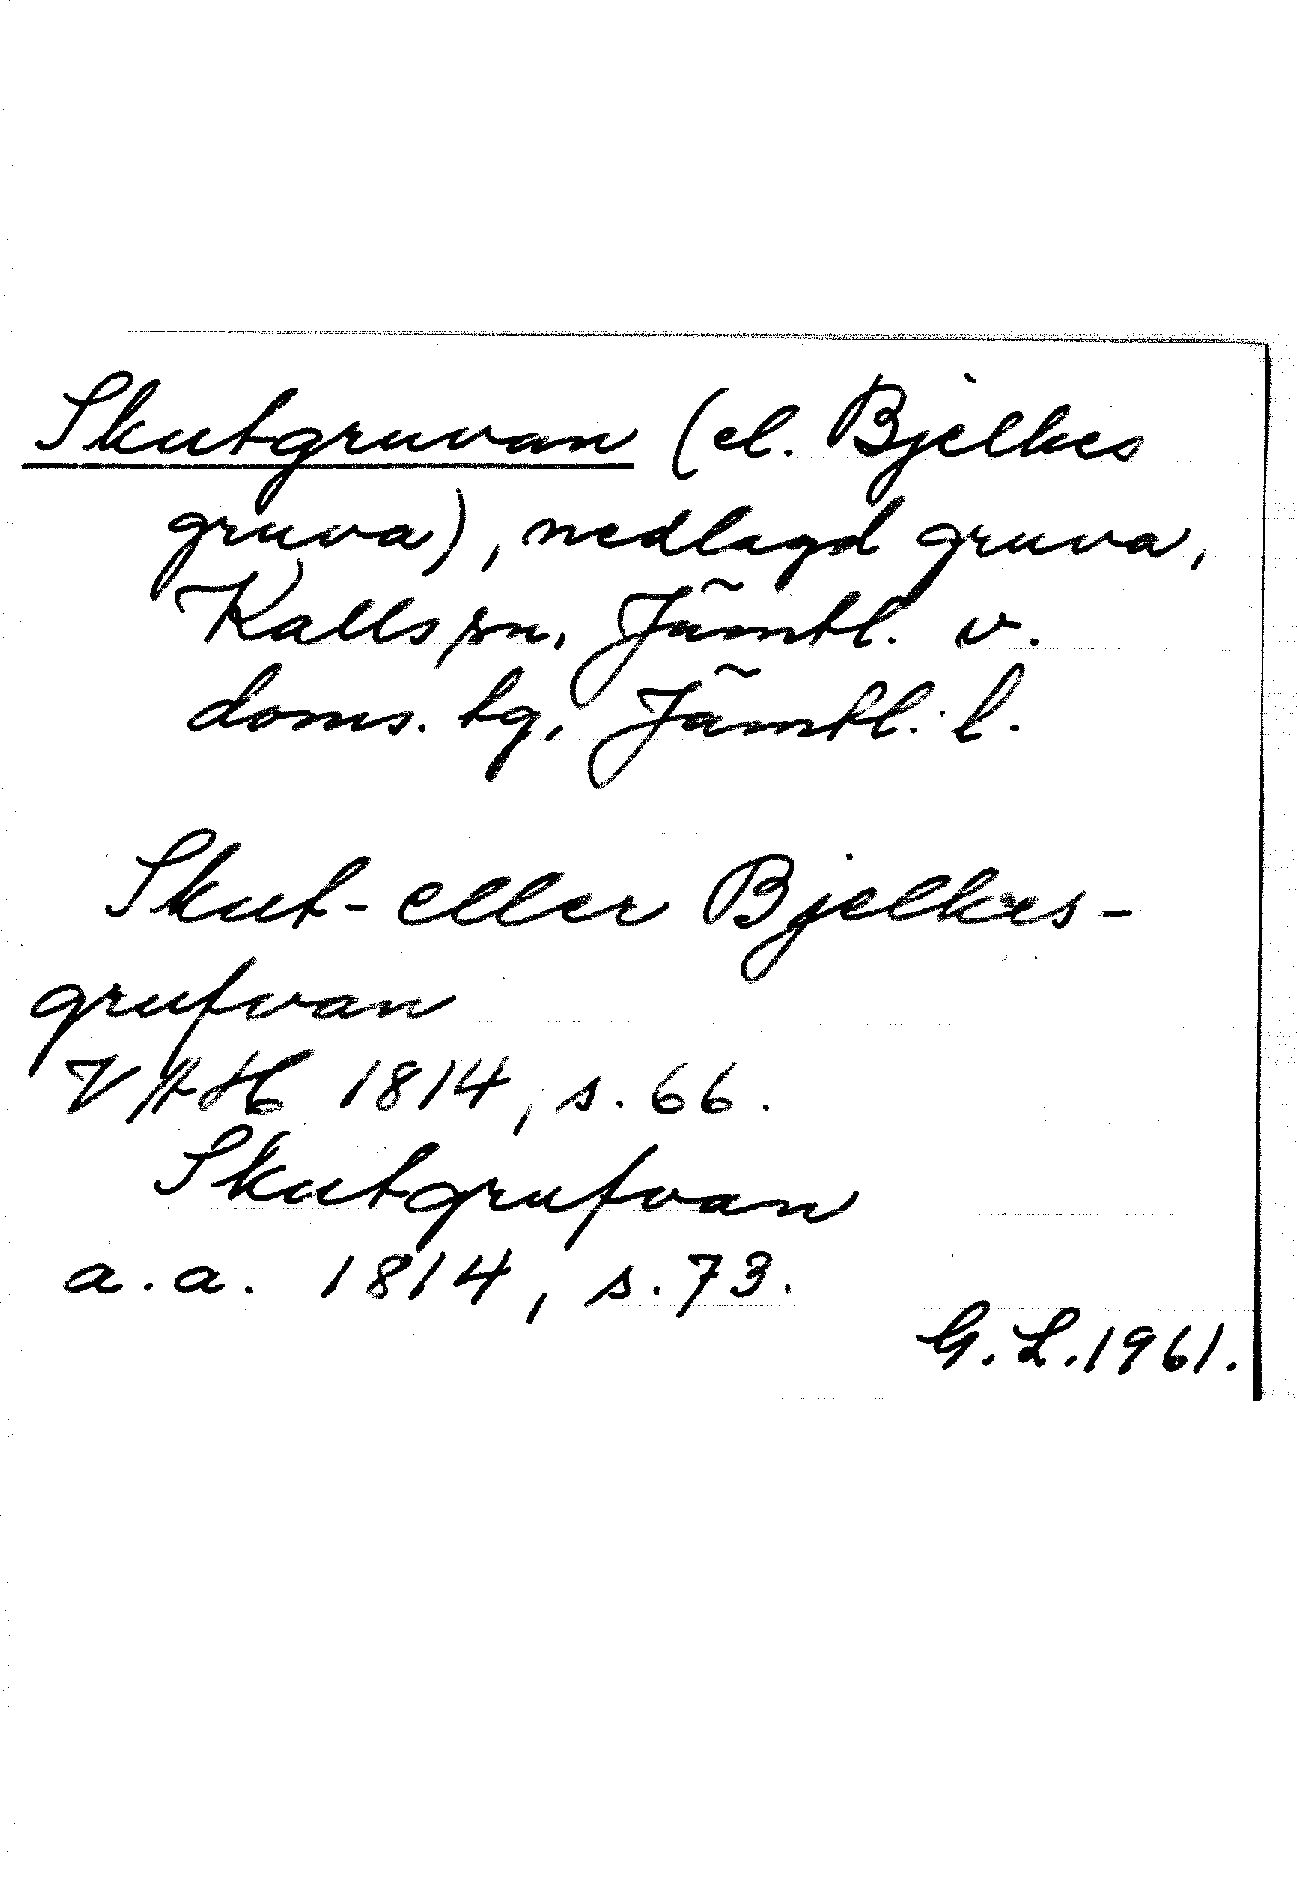 Skutgruvan (el. Bjelkes
gruva), nedlagd gruva,
Kalls sn, Jämtl. v.
doms. tg, Jämtl. l.
Skut- eller Bjelkes-
grufvan
VAH 1814, s. 66.
Skutgrufvan
a.a. 1814, s. 73.
G. L. 1961.